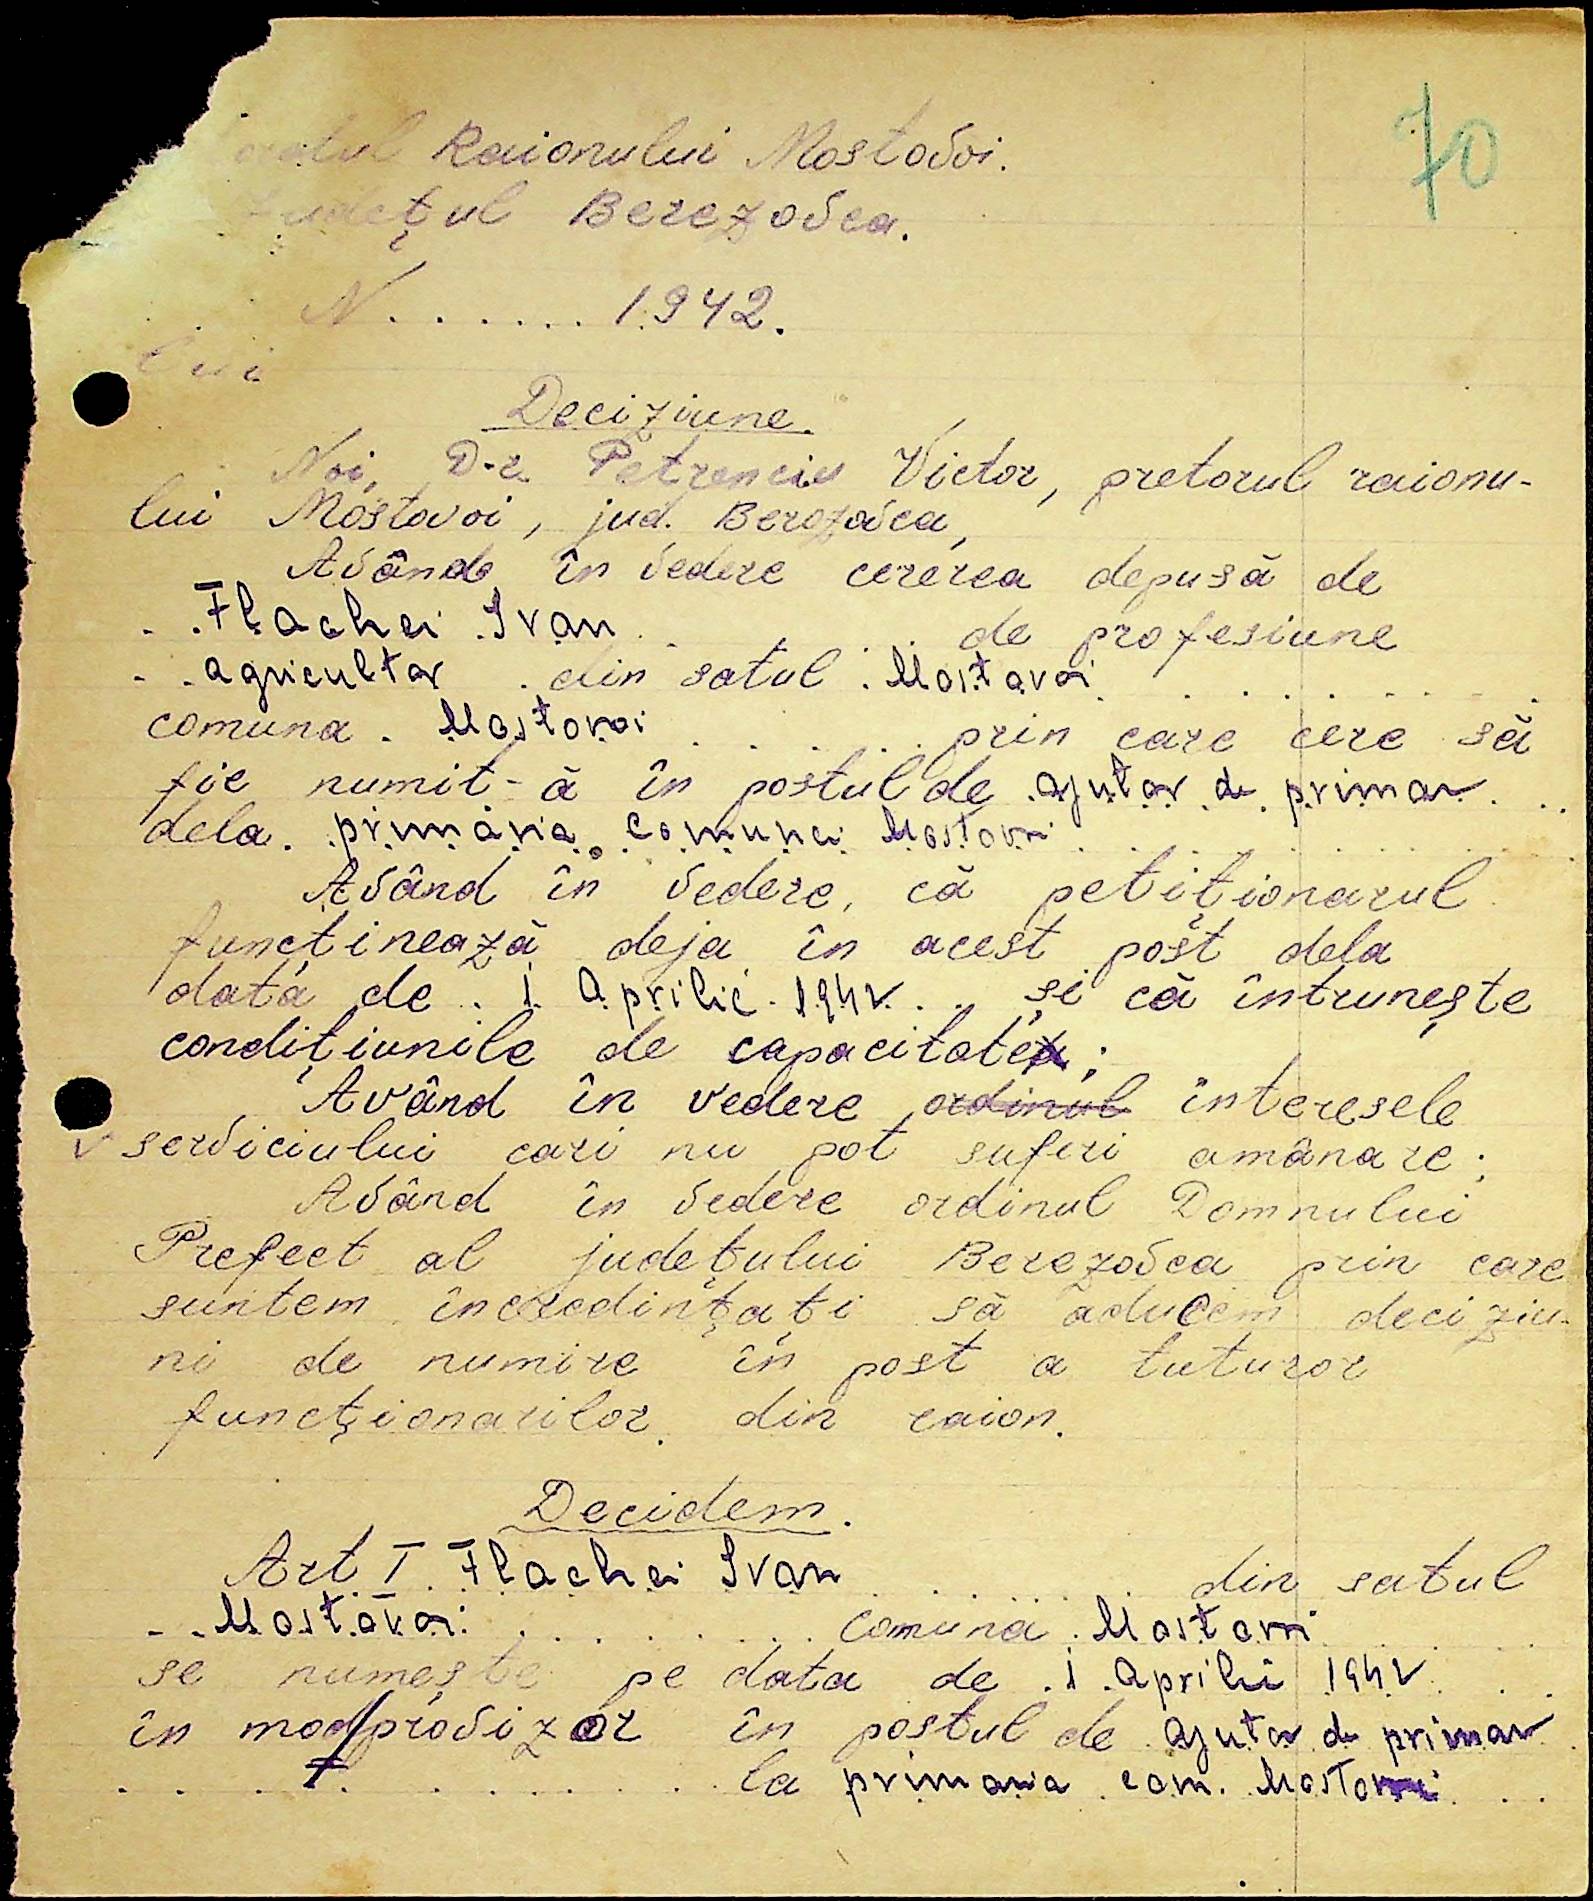 70
Raionului Mostovoi.
Județul Berezovca.
N. . . . . . . 1942.
lui
Deciziune.
Noi, D-r Petrenciu Victor, pretorul raionu-
lui Mostovoi, jud. Berezovca,
Având în vedere cererea depusă de
. . Flachei Ivan . . . de profesiune
. . agricultor . din satul . Mostovoi . . . . . .
comuna . Mostovoi . . . . . prin care cere să
fie numit-ă în postul de ajutor de primar . . .
dela . primăria comunei Mostovoi . . . . .
Având în vedere, că petiționarul
funcținează deja în acest post dela
data de . 1 Aprilie 1942 . . și că întrunește
condițiunile de capacitate;
Având în vedere ordinul interesele
v serviciului cari nu pot suferi amânare;
Având în vedere ordinul Domnului
Prefect al județului Berezovca prin care
suntem încredințați să aducem deciziu-
ni de numire în post a tuturor
funcționarilor din raion.
Decidem.
Art I. Flachei Ivan . . . . . din satul
. . Mostovoi . . . . . . . comuna . Mostovoi
se numește pe data de . 1 Aprilie 1942 . . .
în mod provizor în postul de ajutor de primar
. . . . . . . . . . la primaria com. Mostovoi . . .